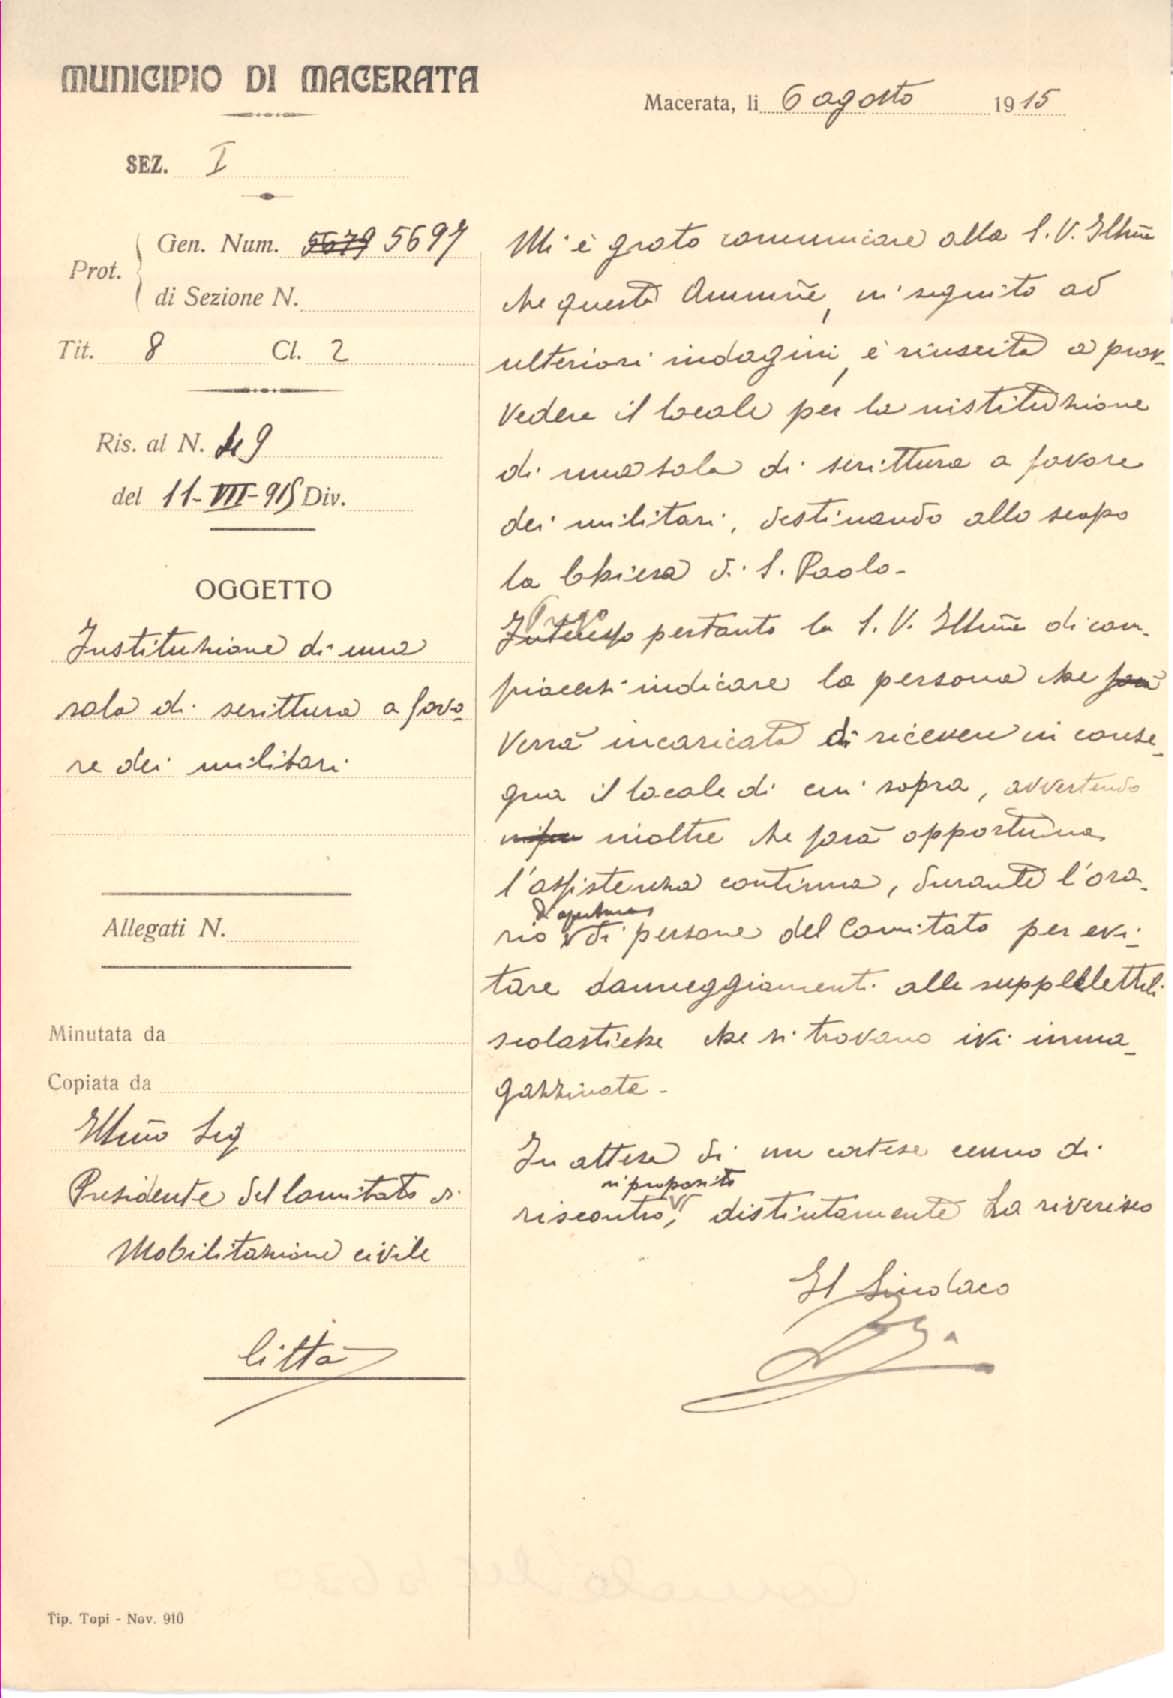 MUNICIPIO DI MACERATA
Macerata, li 6 agosto 1915
SEZ. I
Prot. Gen. Num. 5679 5697
di Sezione N.
Tit. 8 Cl. 2
Ris. al N. 49
del 11-VII-915 Div.
OGGETTO
Instituzione di una
sala di scrittura a favo-
re dei militari
Allegati N.
Minutata da
Copiata da
Illmo Sig
Presidente del Comitato di
Mobilitazione civile
Città
Tip. Topi - Nov. 910
Mi è grato comunicare alla S. V. Illma
che questa Ammne, in seguito ad
ulteriori indagini, è riuscita a prov-
vedere il locale per la instituzione
di una sala di scrittura a favore
dei militari, destinando allo scopo
la Chiesa di S. Paolo-
Prego
Interesso pertanto la S. V. Illma di com-
piacersi indicare la persona che sarà
verrà incaricata di ricevere in conse-
gna il locale di cui sopra, avvertendo
inoltre che sarà opportuna
l'assistenza continua, durante l'ora-
d'apertura
rio di persone del Comitato per evi-
tare danneggiamenti alle suppellettili
scolastiche che si trovano ivi imma-
gazzinate-
In attesa di un cortese cenno di
in proposito
riscontro, distintamente La riverisco
Il Sindaco